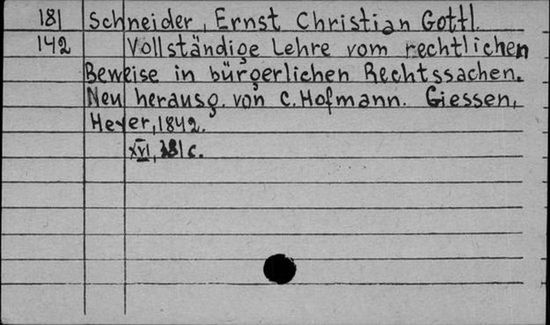 181 Schneider, Ernst Christian Gottl.
142 Vollständige Lehre vom rechtlichen
Beweise in bürgerlichen Rechtssachen.
Neu herausg. von C. Hofmann. Giessen,
Heyer, 1842.
XVI, 381 c.